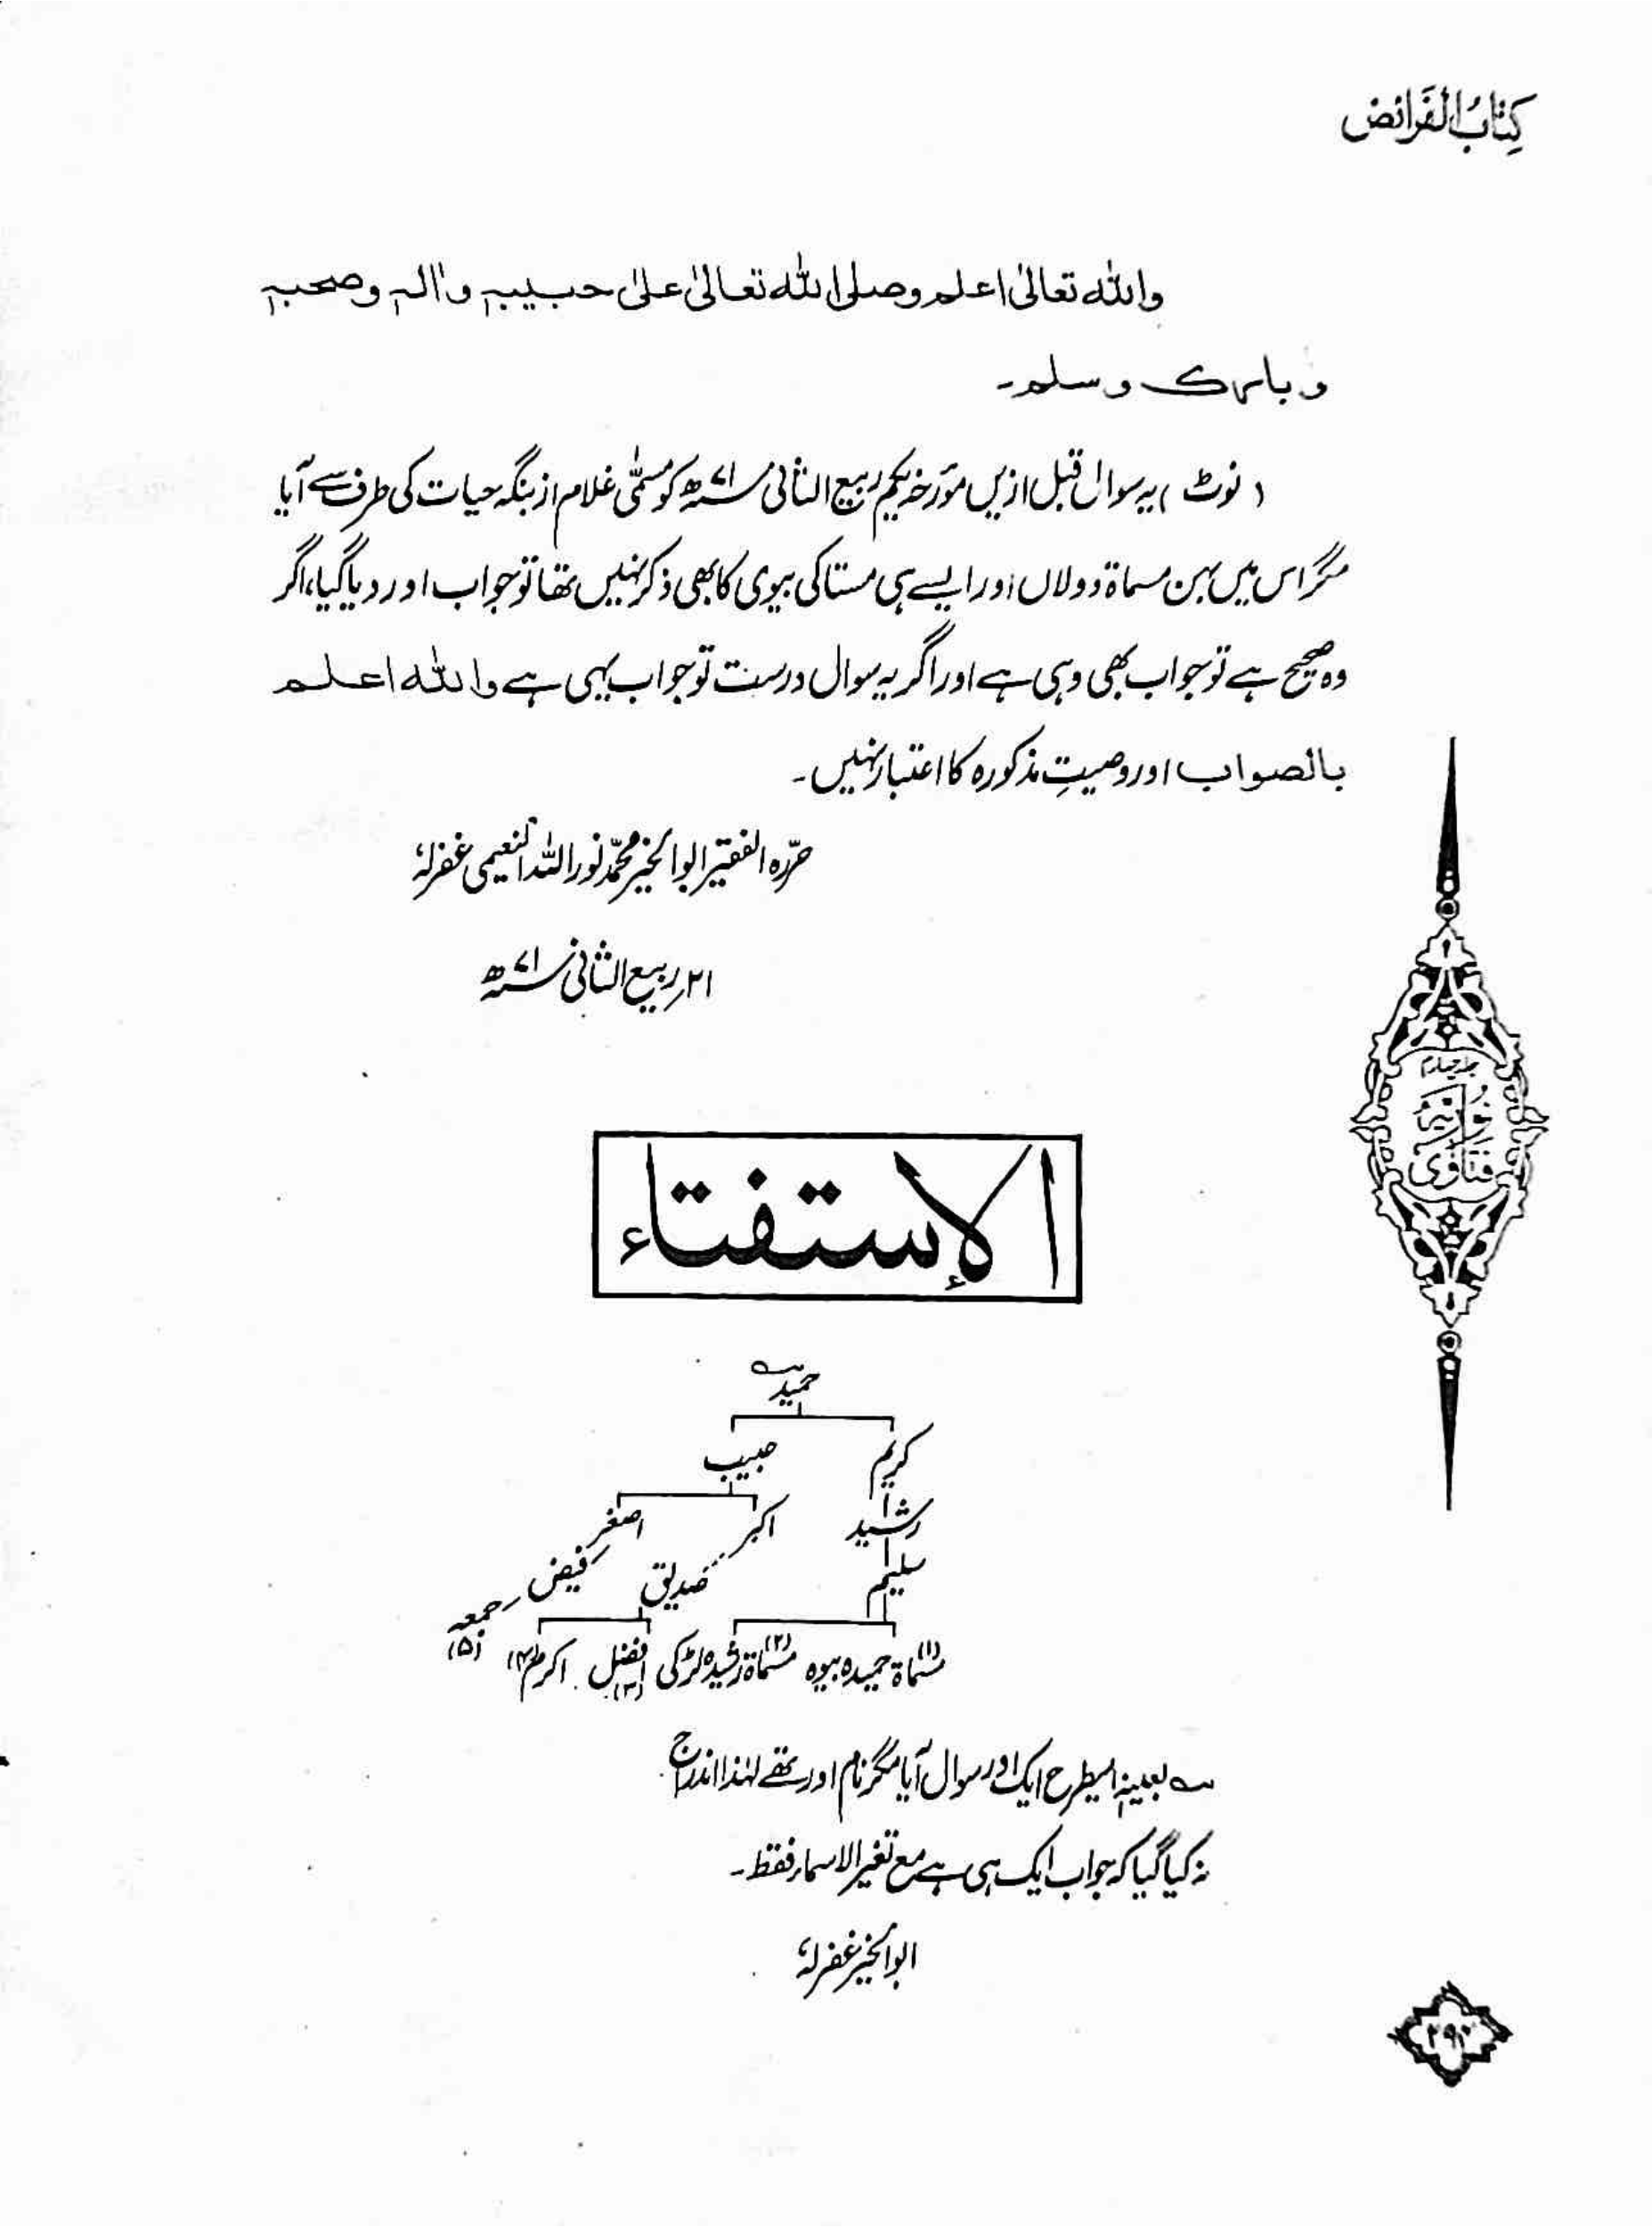 کِتَابُ الْفَرَائض
واللہ تعالیٰ اعلم وصلی اللہ تعالیٰ علیٰ حبیبہٖ واٰلہٖ وصحبہٖ
وبارک وسلم۔
(نوٹ) یہ سوال قبل ازیں مؤرخہ یکم ربیع الثانی ۷۱ھ کو مسمّٰی غلام از بنگہ حیات کی طرف سے آیا
مگر اس میں بہن مسماۃ دولاں اور ایسے ہی مستا کی بیوی کا بھی ذکر نہیں تھا تو جواب اور دیا گیا، اگر
وہ صحیح ہے تو جواب بھی وہی ہے اور اگر یہ سوال درست تو جواب یہی ہے واللہ اعلم
بالصواب اور وصیتِ مذکورہ کا اعتبار نہیں۔
حرّرہ الفقیر ابوالخیر محمّد نور اللہ النعیمی غفرلہٗ
۲۱ ربیع الثانی ۷۱ھ
جلد چہارم
نُوریّہ
فتاویٰ
الإستفتاء
حمید؎
کریم حبیب
رشید اکبر اصغر
سلیم صدیق فیض
(۱) مسماۃ حمیدہ بیوہ (۲) مسماۃ رشیدہ لڑکی افضل (۳) اکرم (۴) جمعہ (۵)
؎ بعینہٖ اسیطرح ایک اور سوال آیا مگر نام اور تھے لہٰذا اندراج
نہ کیا گیا کہ جواب ایک ہی ہے مع تغیر الاسماء فقط۔
ابوالخیر غفرلہٗ